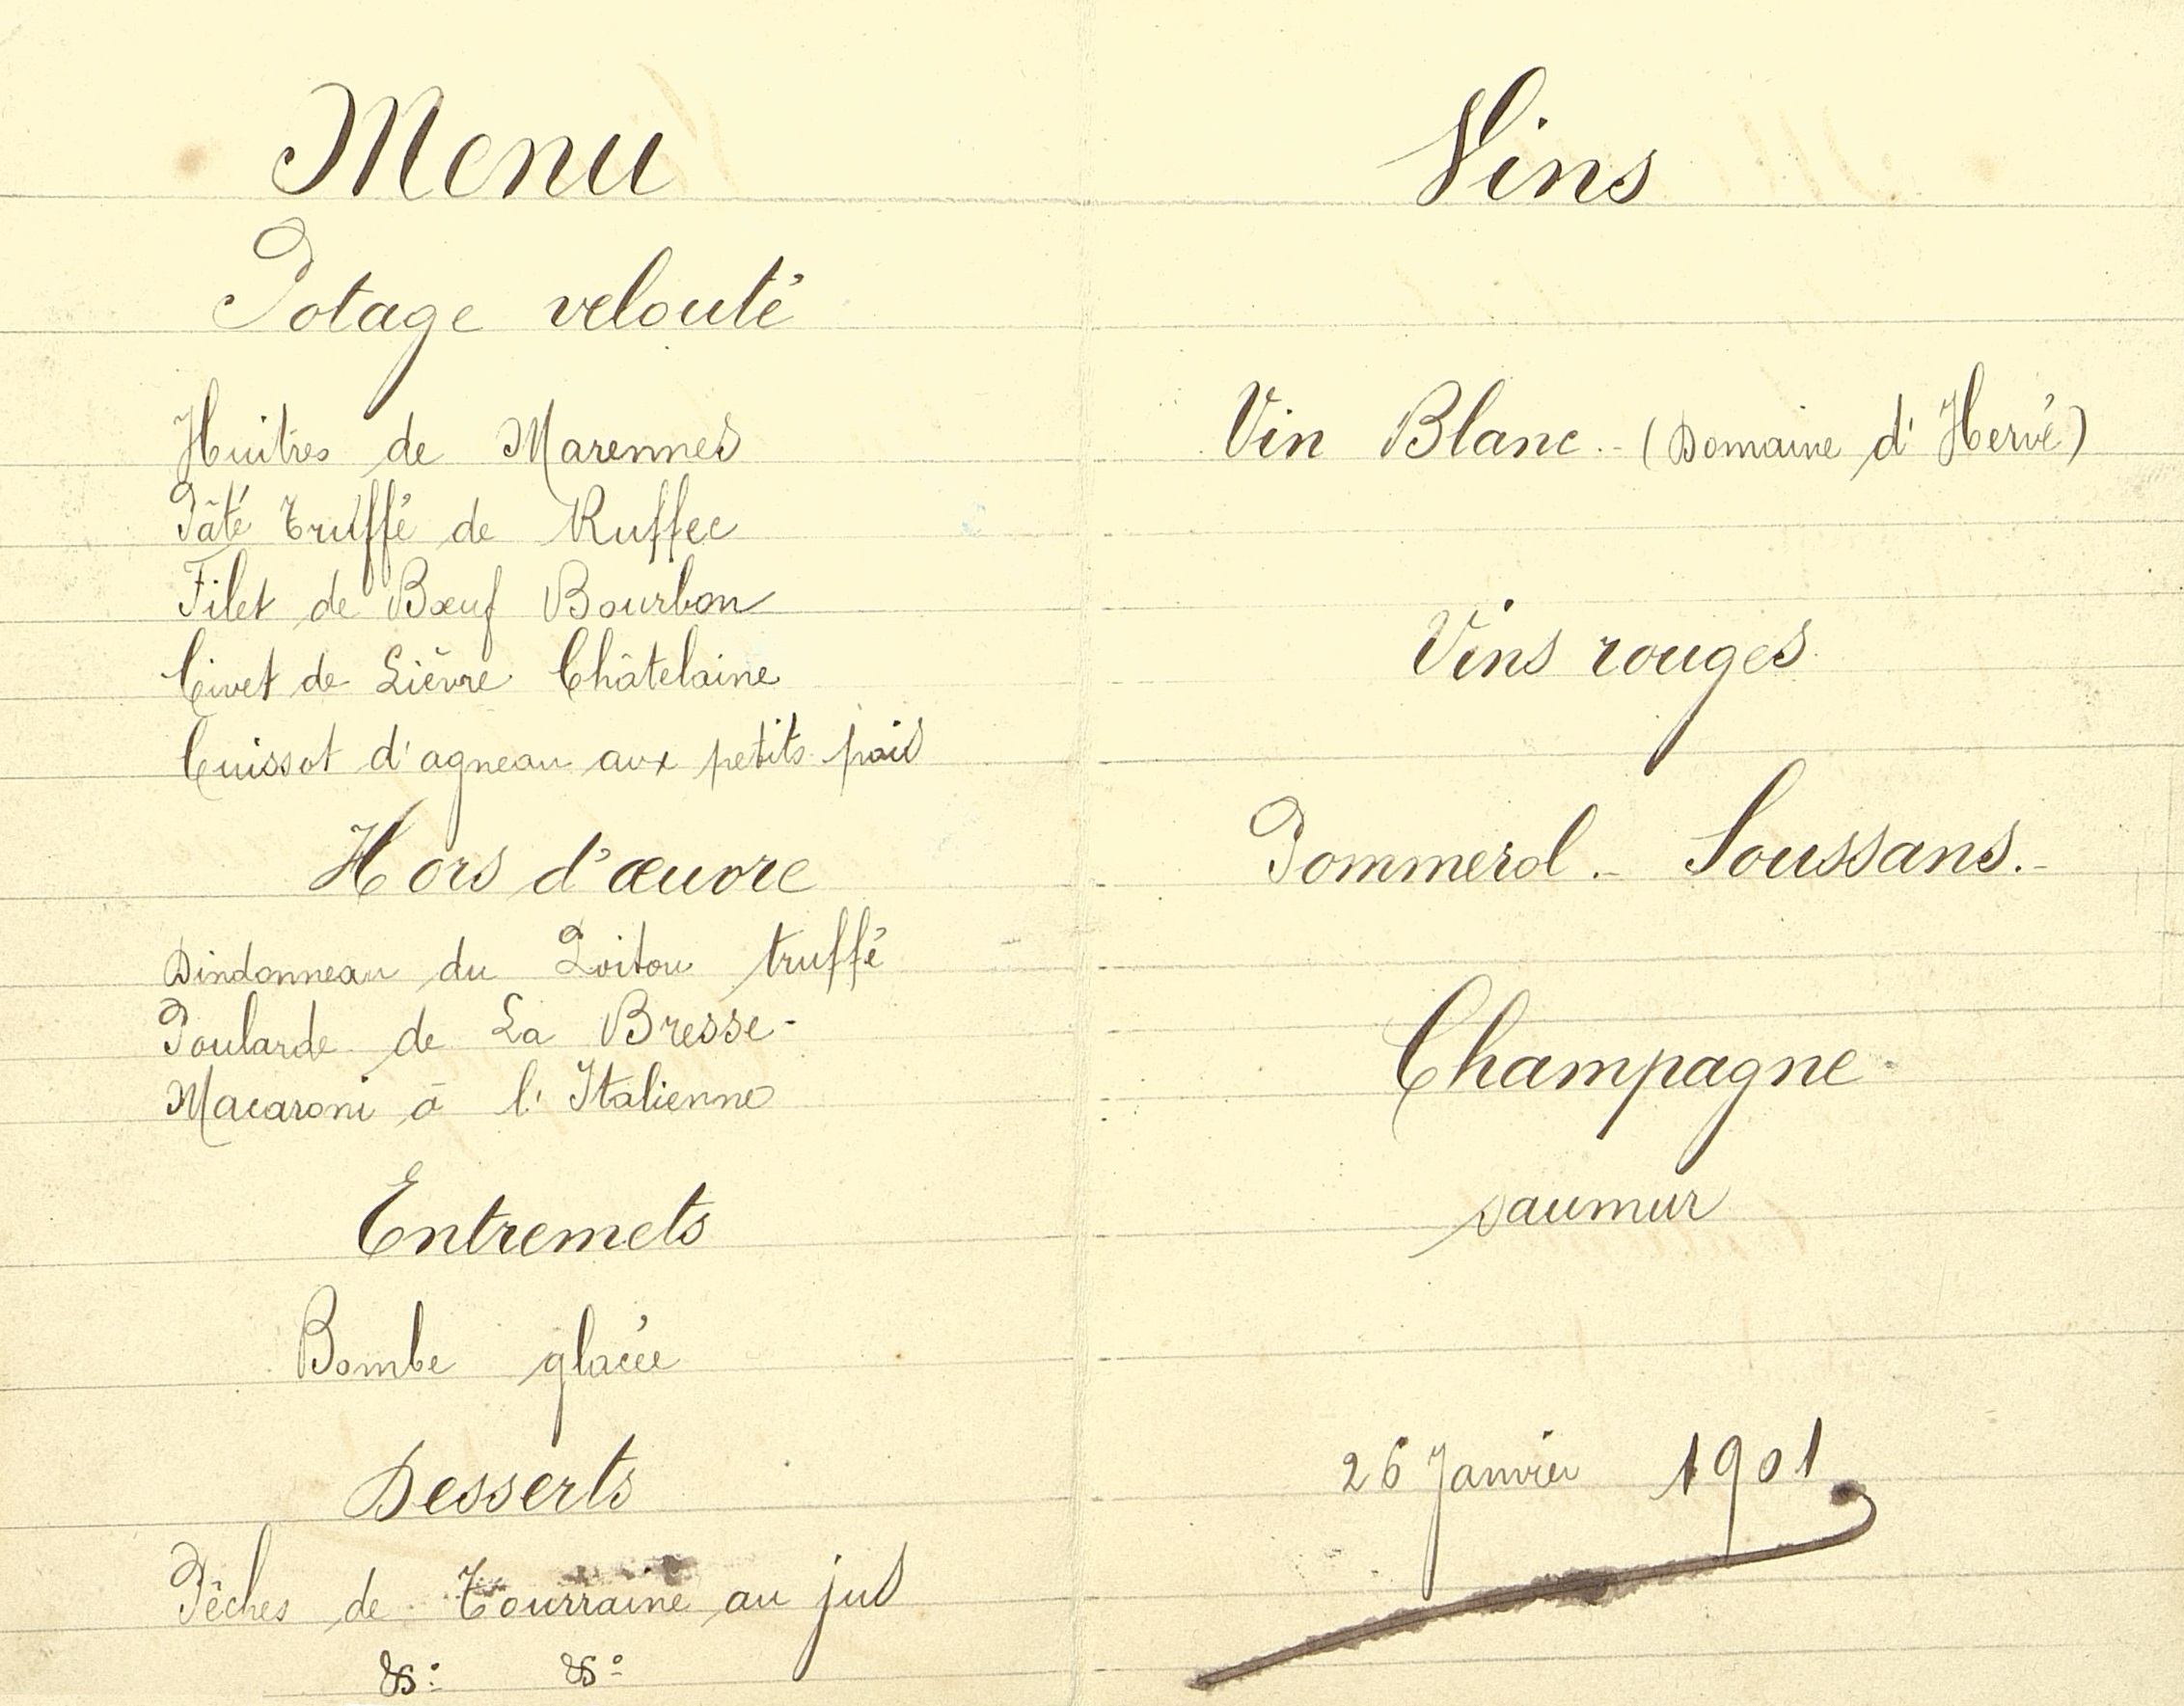 Menu
Potage velouté
Huitres de Marennes
Pâté truffé de Ruffec
Filet de Bœuf Bourbon
Civet de Lièvre Châtelaine
Cuissot d'agneau aux petits pois
Hors d'œuvre
Dindonneau du Poitou truffé
Poularde de La Bresse -
Macaroni à l'Italienne
Entremets
Bombe glacée
Desserts
Pêches de Tourraine au jus
&: &:
Vins
Vin Blanc.- (Domaine d'Hervé)
Vins rouges
Pommerol.- Soussans.-
Champagne
Saumur
26 Janvier 1901